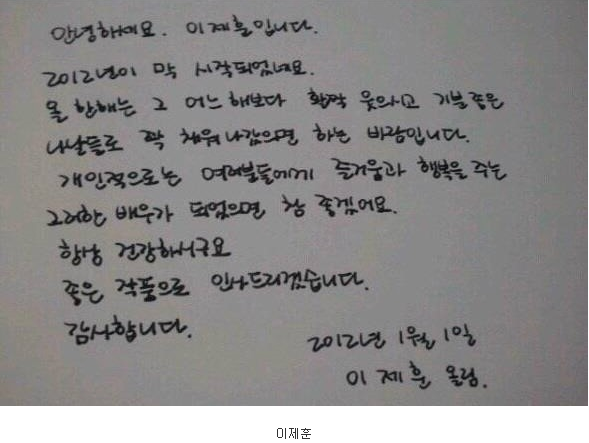 안녕하세요. 이제훈입니다.
2012년이 막 시작되었네요.
올 한해는 그 어느해보다 활짝 웃으시고 기분좋은
나날들로 꽉 채워나갔으면 하는 바람입니다.
개인적으로는 여러분들에게 즐거움과 행복을 주는
그러한 배우가 되었으면 참 좋겠어요.
항상 건강하시구요
좋은 작품으로 인사드리겠습니다.
감사합니다.
2012년 1월 1일
이제훈 올림.
이제훈